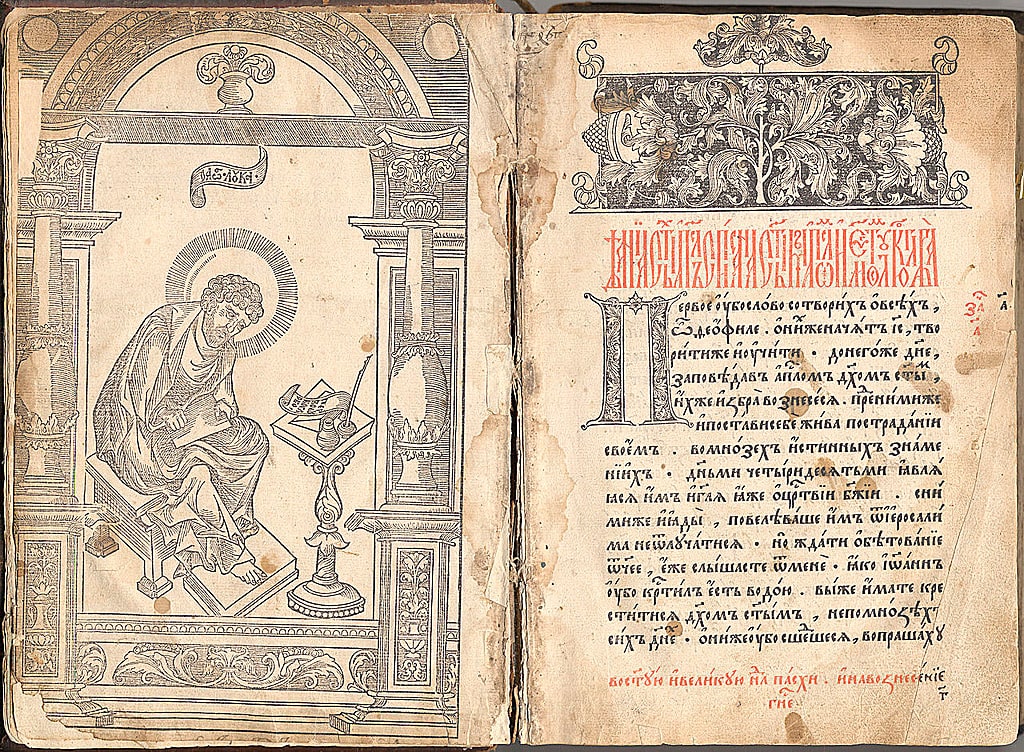 лꙋка
Первое ᲂу҆бо слово сотворихъ ѡ҆всѣхъ,
ѽ ѳеофиле . ѻ҆ ни́хже начѧ́тъ і҆с҃, тво
ри́тиже и҆ ᲂу҆чи́ти . донего́же дн҃е,
заповѣ́давъ а҆пⷭ҇ломъ дх҃омъ ст҃ы́м,
и҆́хже и҆збра вознесесѧ . преⷣни́миже
и҆ поста́ви себе жи́ва пострада́нїи
свое́мъ . вомно́зехъ и҆́стинныхъ зна́ме
нїихъ . дн҃ьми четы́ридесѧтьми ꙗ҆влѧ
ꙗсѧ и҆́мъ и҆ гл҃ѧ ꙗ҆́же ѻ҆ црⷭ҇твїи бж҃їи . сни́
миже и҆ꙗды̀ , повелѣва́ше и҆́мъ ѿ і҆еросали́
ма неѿлꙋча́тисѧ . но жда́ти ѻ҆бѣтова́нїе
ѻ҆́ч҃ее , е҆́же слы́шасте ѿ мене . ꙗ҆́ко і҆ѡа́ннъ
ᲂу҆́бо крⷭ҇ти́лъ е҆́сть водо́ю . вы́же и҆́мате кре
сти́тисѧ дх҃омъ ст҃ы́мъ , непомно́зѣхъ
си́хъ дн҃е . ѻ҆ни́же ᲂу҆́бо сше́дшесѧ, вопраша́хꙋ
восⷮꙋю и҆ вели́кꙋю нⷣлю па́схи . и҆ на вознесе́нїе
гн҃е